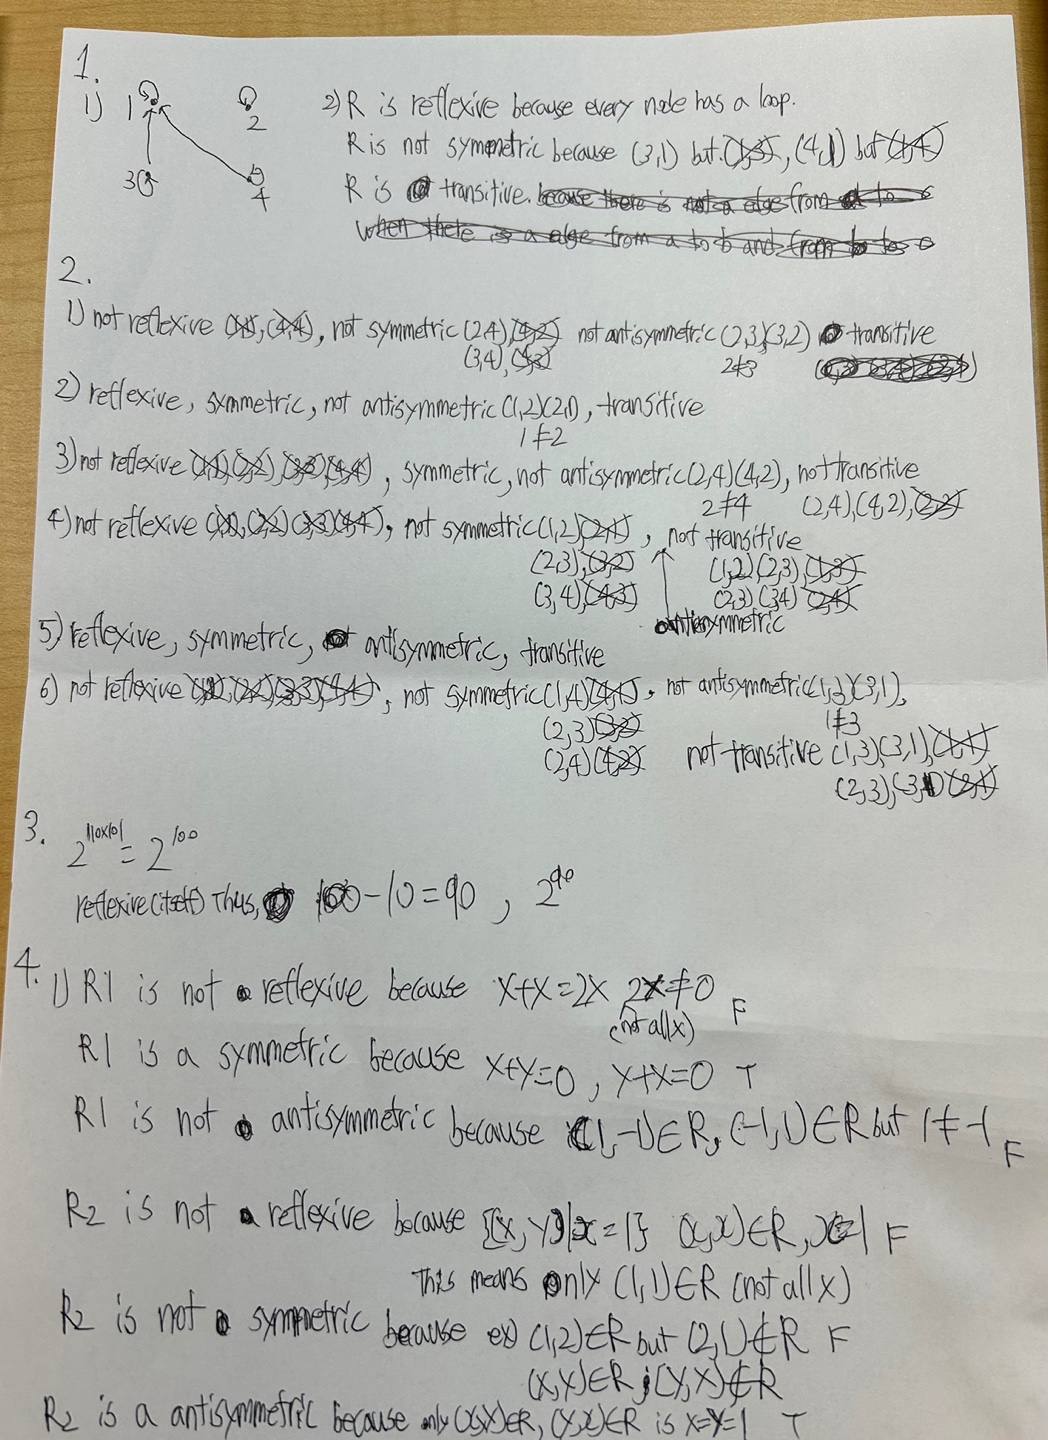 1.
1) 1 2 3 4
2) R is reflexive because every node has a loop.
R is not symmetric because (3,1) but (1,3), (4,1) but (1,4)
R is transitive. because there is not a edge from a to c
when there is a edge from a to b and from b to c
2.
1) not reflexive (1,1), (4,4), not symmetric (2,4) (4,2) not antisymmetric (2,3)(3,2) transitive
(3,4), (4,3) 2≠3
2) reflexive, symmetric, not antisymmetric (1,2)(2,1), transitive
1≠2
3) not reflexive (1,1),(2,2),(3,3)(4,4), symmetric, not antisymmetric (2,4)(4,2), not transitive
2≠4 (2,4),(4,2),(2,2)
4) not reflexive (1,1),(2,2)(3,3)(4,4), not symmetric (1,2)(2,1), not transitive
(2,3),(3,2) (1,2)(2,3),(1,3)
(3,4)(4,3) (2,3),(3,4) (2,4)
antisymmetric
5) reflexive, symmetric, antisymmetric, transitive
6) not reflexive (1,1),(2,2)(3,3)(4,4), not symmetric (1,4)(4,1), not antisymmetric (1,3)(3,1),
(2,3)(3,2) 1≠3
(2,4)(4,2) not transitive (1,3)(3,1),(1,1)
(2,3),(3,1)(2,1)
3.
2^{10x10} = 2^{100}
reflexive (itself) Thus, 100-10=90, 2^{90}
4.
1) R1 is not a reflexive because x+x=2x 2x≠0 F
(not all x)
R1 is a symmetric because x+y=0, y+x=0 T
R1 is not a antisymmetric because (1,-1)∈R, (-1,1)∈R but 1≠-1 F
R2 is not a reflexive because {(x,y)|x=1} (x,x)∈R, x=1 F
This means only (1,1)∈R (not all x)
R2 is not a symmetric because ex) (1,2)∈R but (2,1)∉R F
(x,y)∈R, (y,x)∉R
R2 is a antisymmetric because only (x,y)∈R, (y,x)∈R is x=y=1 T